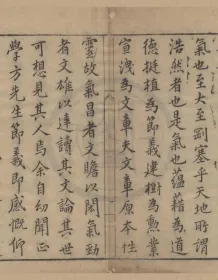 氣也至大至剛塞乎天地所謂
浩然者也是氣也蘊藉為道
德挺植為節義運樹為勲業
宣洩為文章夫文章原本性
靈故氣昌者文贍以閎氣勁
者文雄以達讀其文論其世
可想見其人焉余自幼聞正
學方先生節義即感慨仰